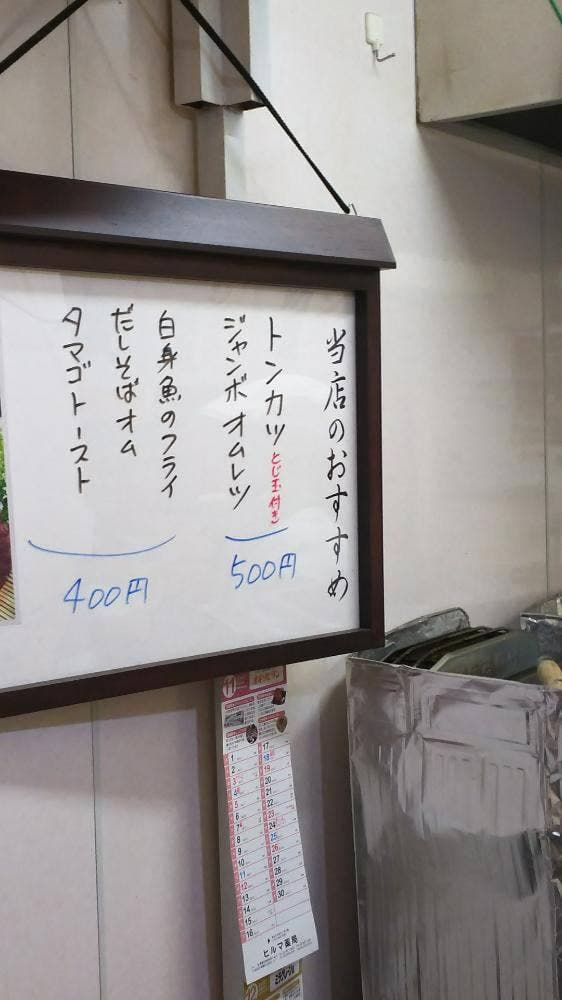 当店のおすすめ
トンカツ とじ玉付き
ジャンボオムレツ
500円
白身魚のフライ
だしそばオム
タマゴトースト
400円
11
1 17
2 18
3 19
4 20
5 21
6 22
7 23
8 24
9 25
10 26
11 27
12 28
13 29
14 30
15
16
ヒルマ薬局
12